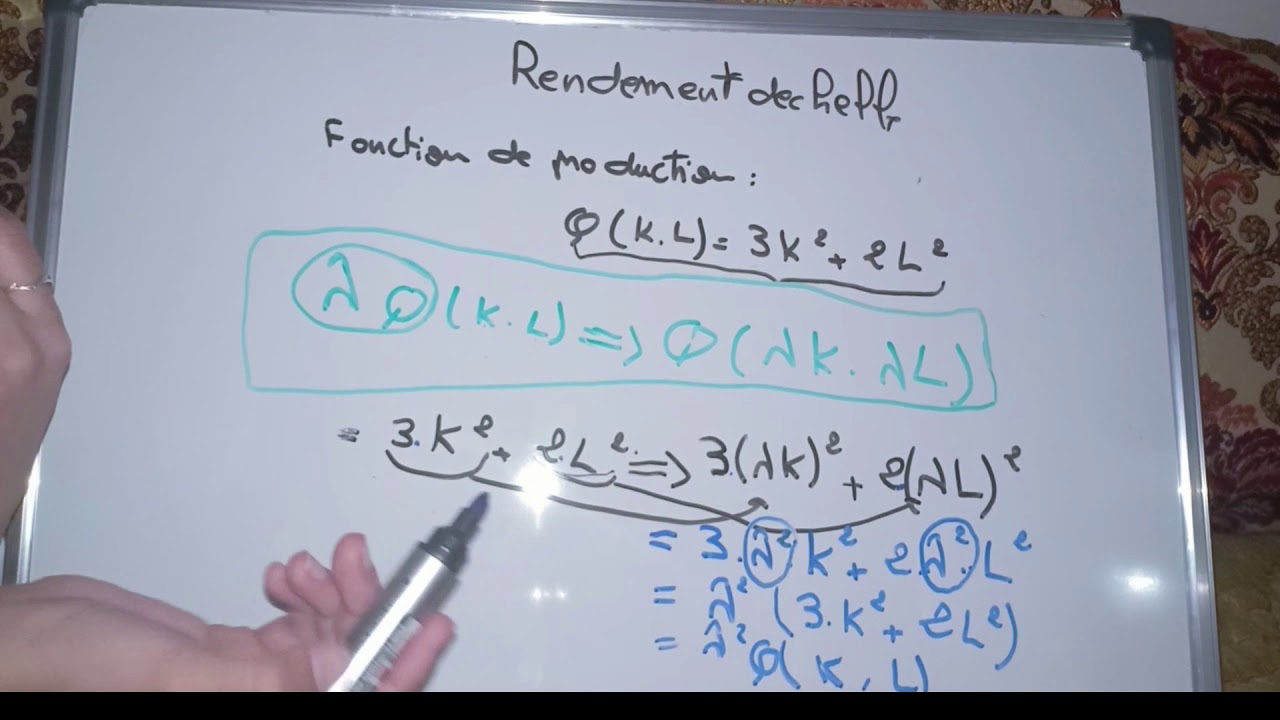 Rendement dechelle
Fonction de production :
Q(K.L) = 3K² + 2L²
λQ(K.L) => Q(λK.λL)
= 3.K² + 2.L² => 3.(λK)² + 2(λL)²
= 3.λ².K² + 2.λ².L²
= λ² (3.K² + 2L²)
= λ² Q(K,L)